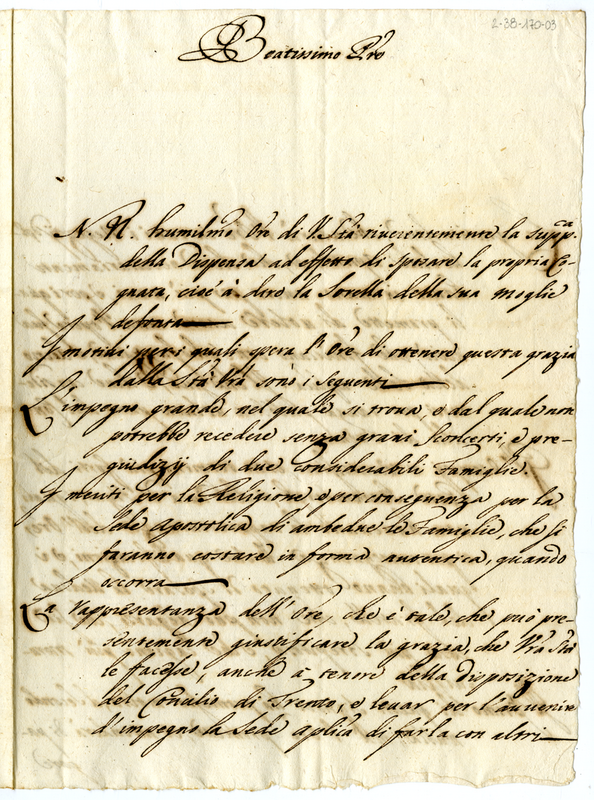 2-38-170-03
Beatissimo Pre
N. N. humilmo Ore di V. Stà riverentemente la suppca
della Dispensa ad effetto di sposare la propria Co-
gnata, cioè à dire la sorella della sua moglie
defonta
I motivi per i quali spera l'Ore di ottenere questa grazia
dalla Stà Vra sono i seguenti
L'impegno grande, nel quale si trova, e dal quale non
potrebbe recedere senza gravi sconcerti, e pre-
giudizij di due considerabili Famiglie.
I meriti per la Religione e per conseguenza per la
Sede apostolica di ambedue le Famiglie, che si
faranno costare in forma autentica, quando
occorra
La rappresentanza dell'Ore, che è tale, che può pre-
sentemente giustificare la grazia, che Vra Stà
le facesse, anche à tenore della disposizione
del Concilio di Trento, e levar per l'avvenire
d'impegno la Sede aplica di farla con altri